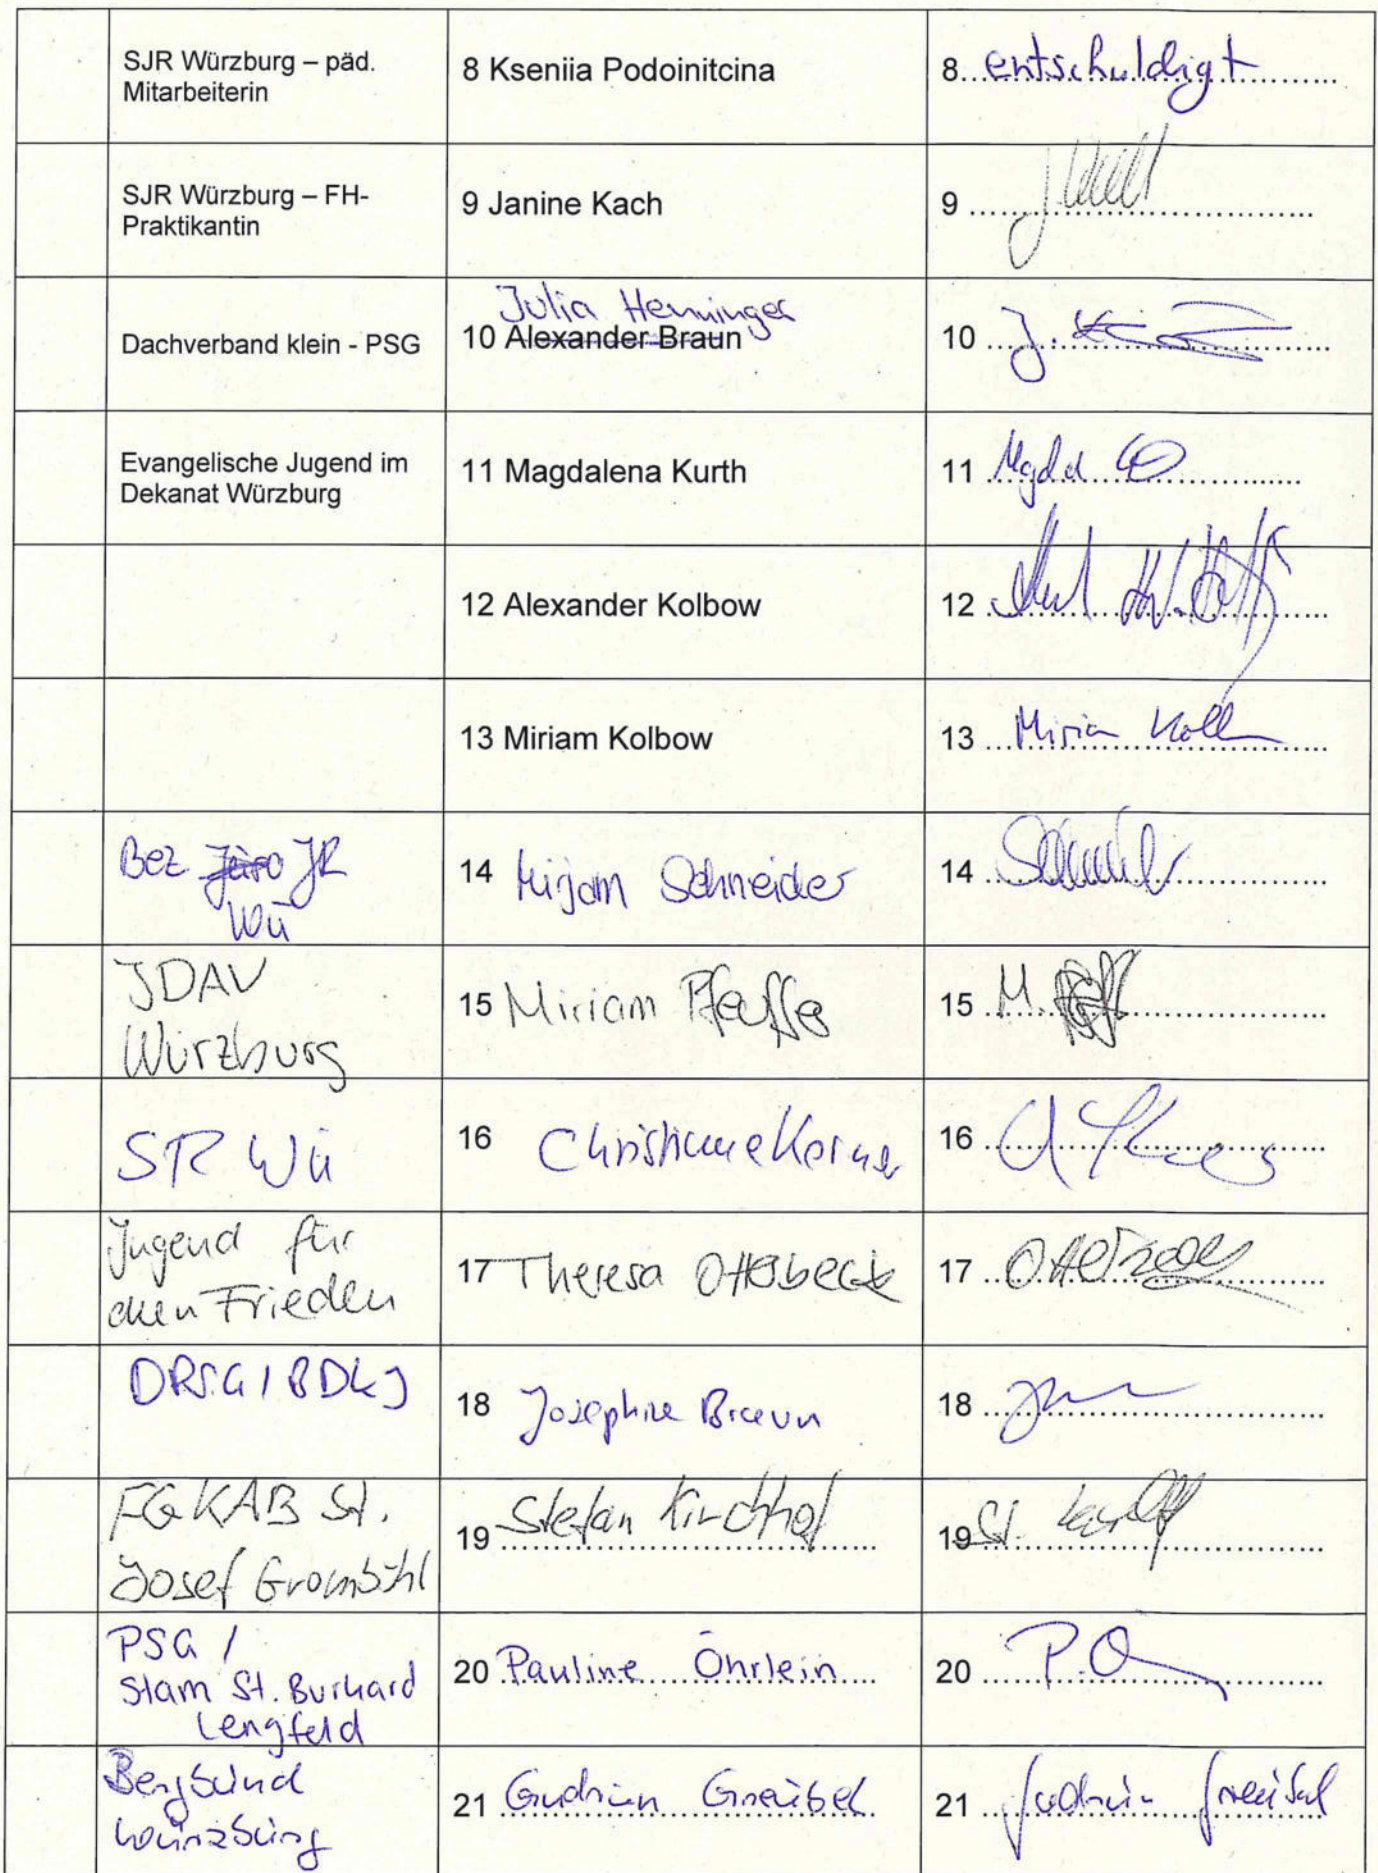 SJR Würzburg – päd.
Mitarbeiterin
8 Kseniia Podoinitcina
8 entschuldigt
SJR Würzburg – FH-
Praktikantin
9 Janine Kach
9
Dachverband klein - PSG
Julia Henninger
10 Alexander Braun
10 J.
Evangelische Jugend im
Dekanat Würzburg
11 Magdalena Kurth
11 Magda
12 Alexander Kolbow
12
13 Miriam Kolbow
13 Miriam Kolb
Bez JR
Wü
14 Mirjam Schneider
14
JDAV
Würzburg
15 Miriam Pfeuffer
15 M.
SR Wü
16 Christiane Kerner
16
Jugend für
den Frieden
17 Theresa Otterbeck
17 Otterbeck
DPSG / BDKJ
18 Josephine Braun
18
FG KAB St.
Josef Grombühl
19 Stefan Kirchhof
19 St.
PSG /
Stam St. Burkard
Lengfeld
20 Pauline Öhrlein
20 P.
Bergbund
Würzburg
21 Gudrun Greubel
21 Gudrun Greubel